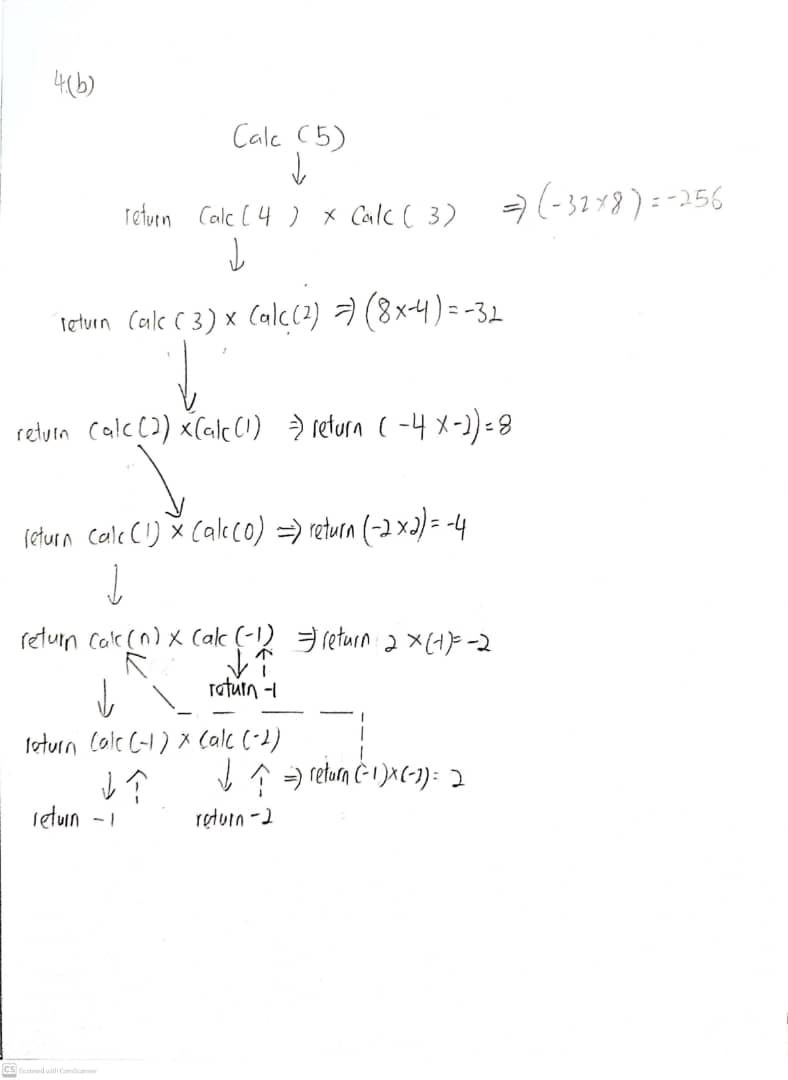 4(b)
Calc (5)
return Calc (4) x Calc (3) ⇒ (-32x8) = -256
return Calc (3) x Calc(2) ⇒ (8x-4) = -32
return Calc(2) x Calc(1) ⇒ return (-4 x -2) = 8
return Calc(1) x Calc(0) ⇒ return (-2 x2) = -4
return Calc(0) x Calc (-1) ⇒ return 2 x(-1) = -2
return -1
return Calc (-1) x Calc (-2)
⇒ return (-1)x(-2) = 2
return -1 return -2
CS Scanned with CamScanner